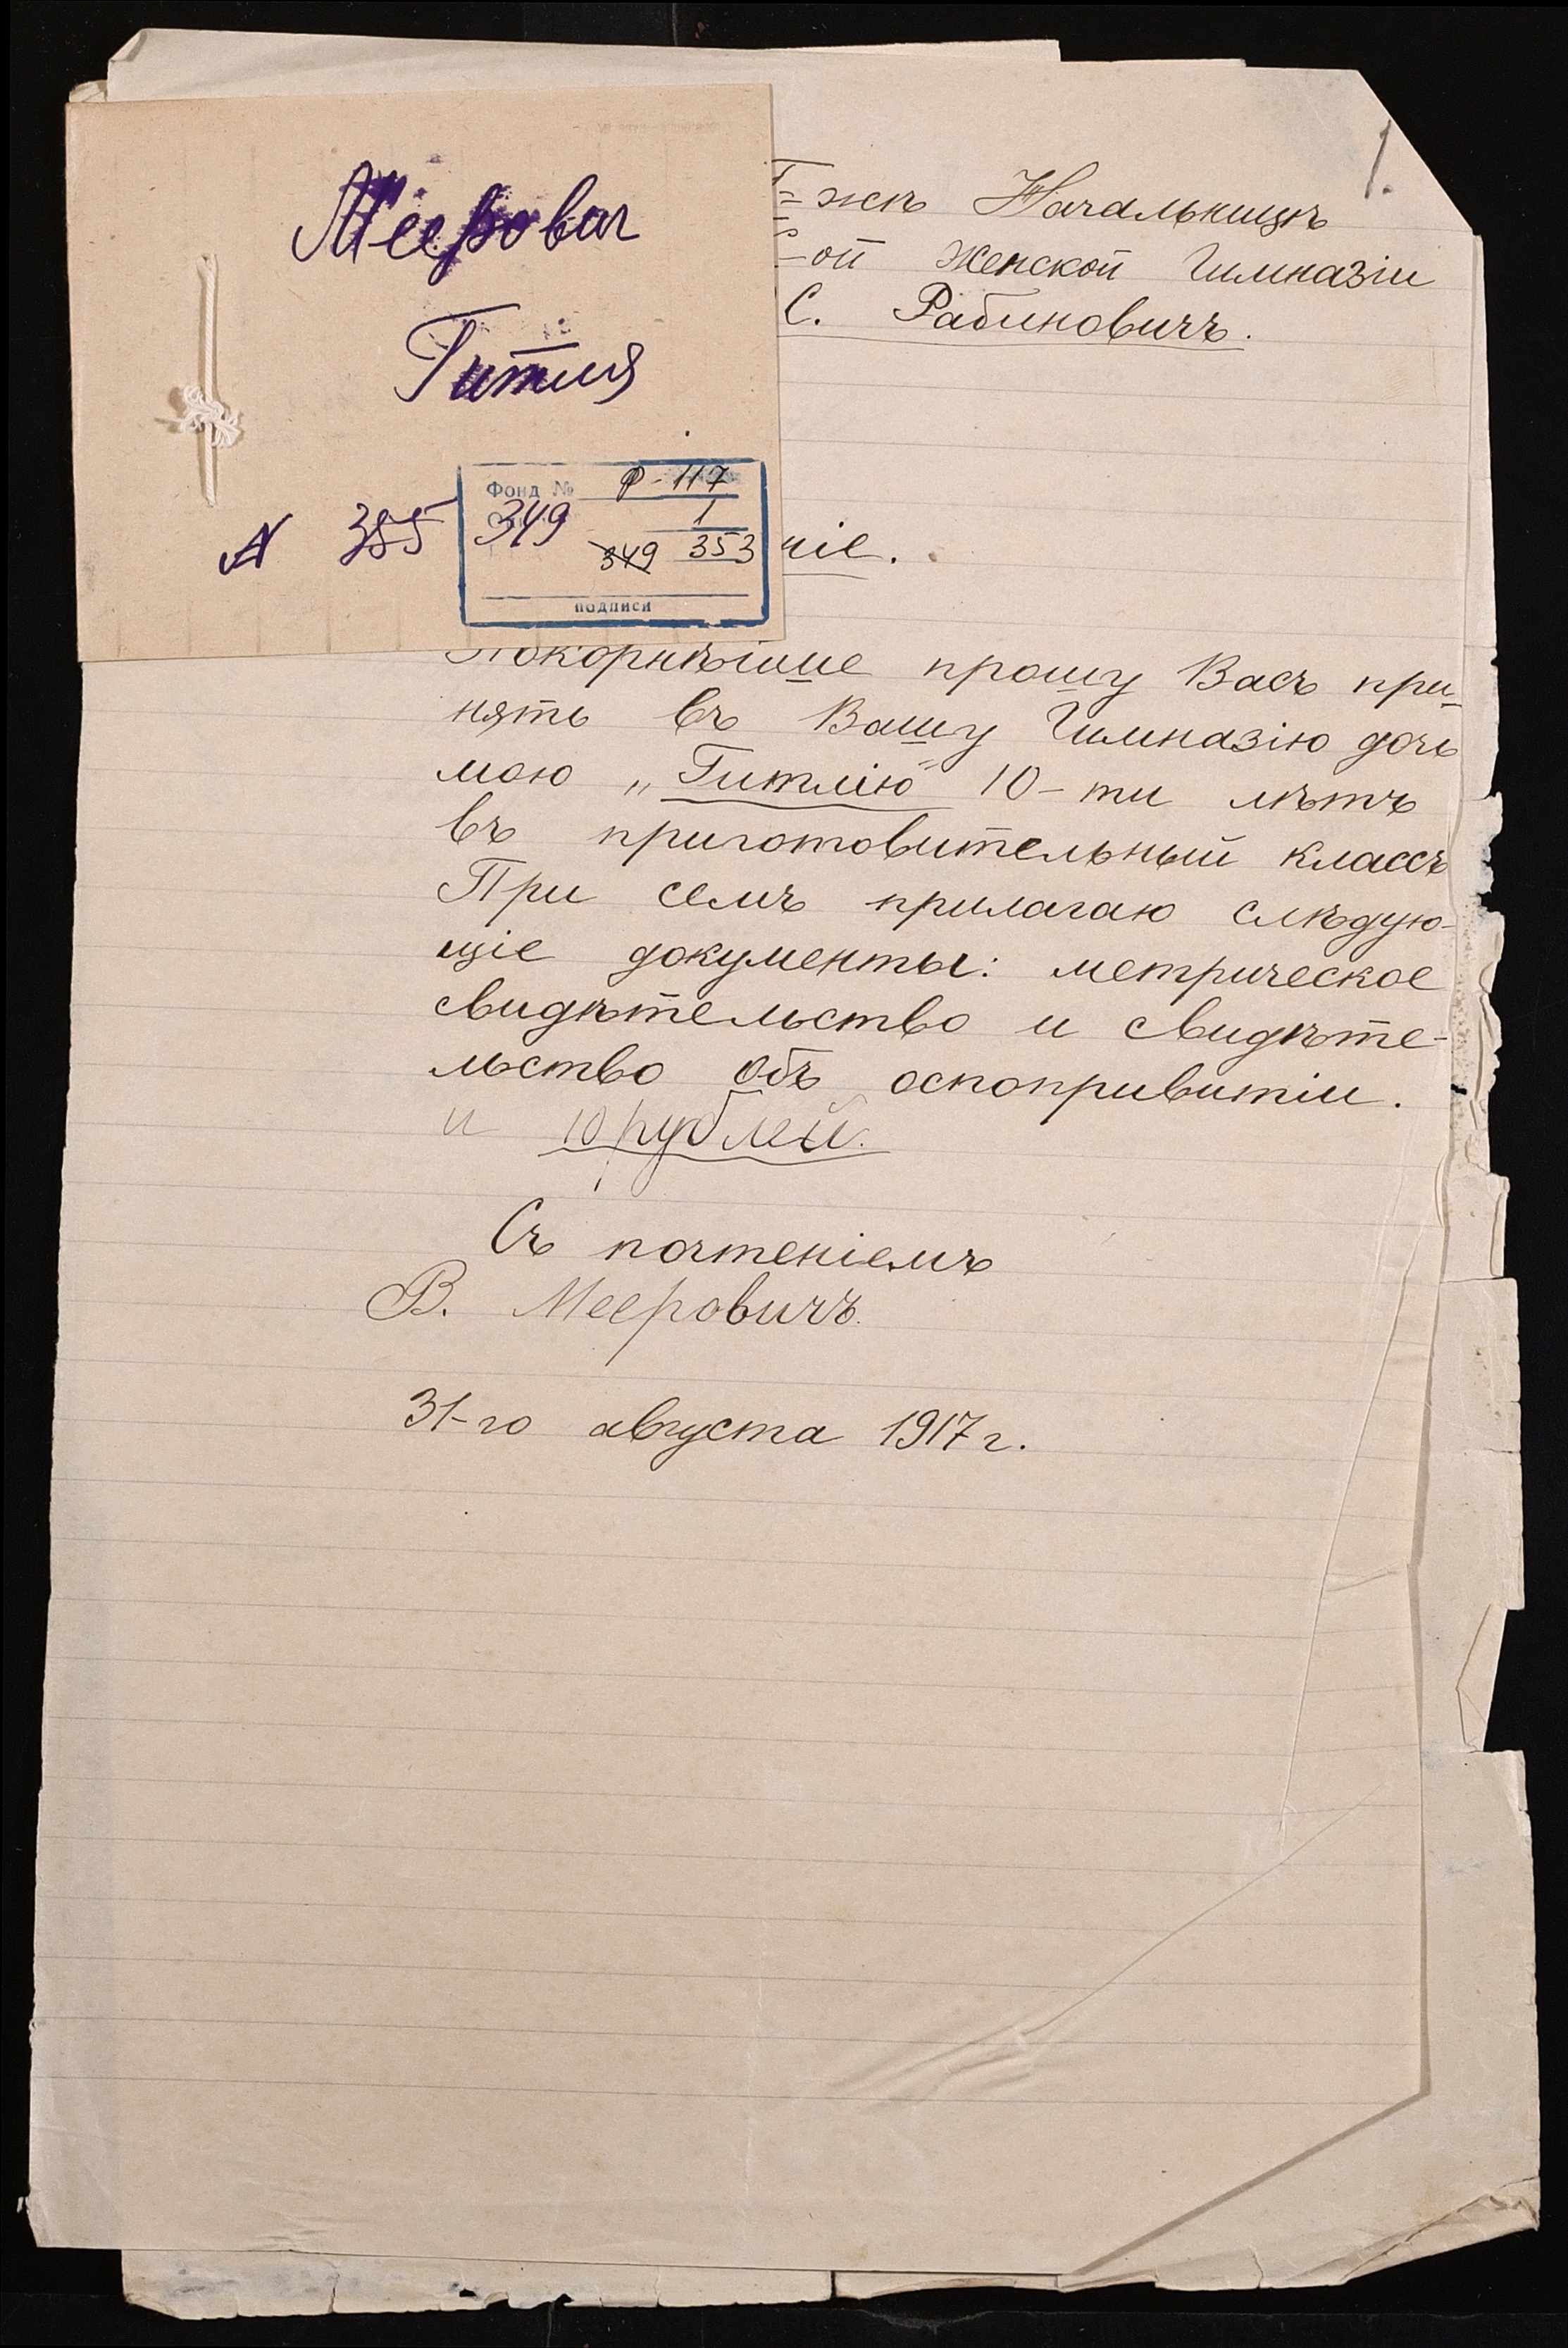 Меерович
Гитля
№ 385
Фонд № Р-117
349 1
349 353
подписи
1.
Г-жѣ Начальницѣ
-ой Женской Гимназіи
С. Рабиновичъ.
ніе.
Покорнѣйше прошу Васъ при-
нять въ Вашу Гимназію дочь
мою „Гитлію" 10-ти лѣтъ
въ приготовительный классъ
При семъ прилагаю слѣдую-
щіе документы: метрическое
свидѣтельство и свидѣте-
льство объ оспопривитіи.
и 10 рублей.
Съ почтеніемъ
В. Мееровичъ.
31-го августа 1917 г.